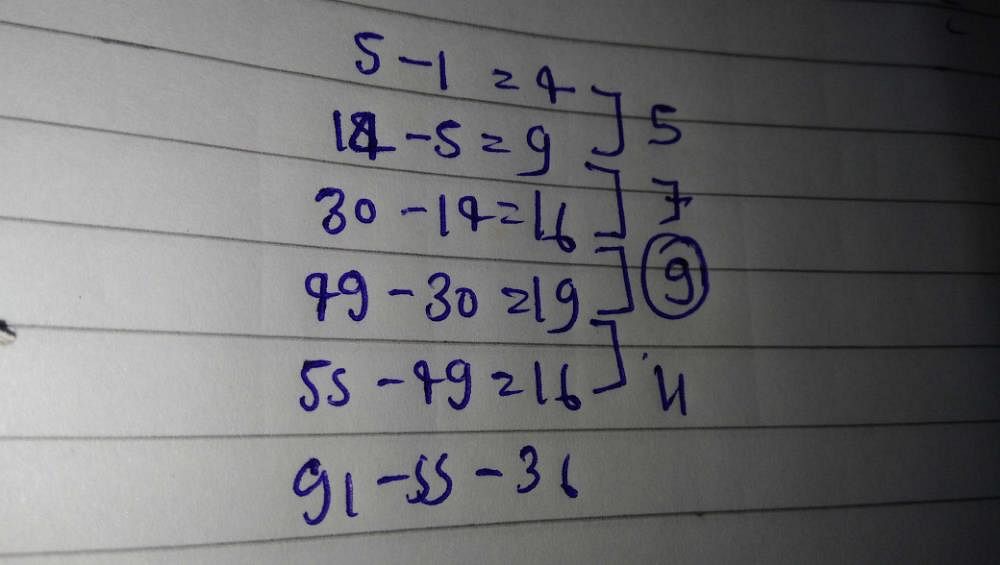 5 - 1 = 4 ] 5
14 - 5 = 9
30 - 14 = 16 ] 7
49 - 30 = 19 ] 9
55 - 49 = 16 ] 11
91 - 55 - 36